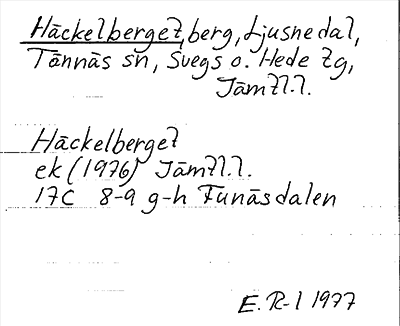 Häckelberget, berg, Ljusnedal,
Tännäs sn, Svegs o. Hede tg,
Jämtl.l.
Häckelberget
ek (1976) Jämtl.l.
17C 8-9 g-h Funäsdalen
E. R-l 1977